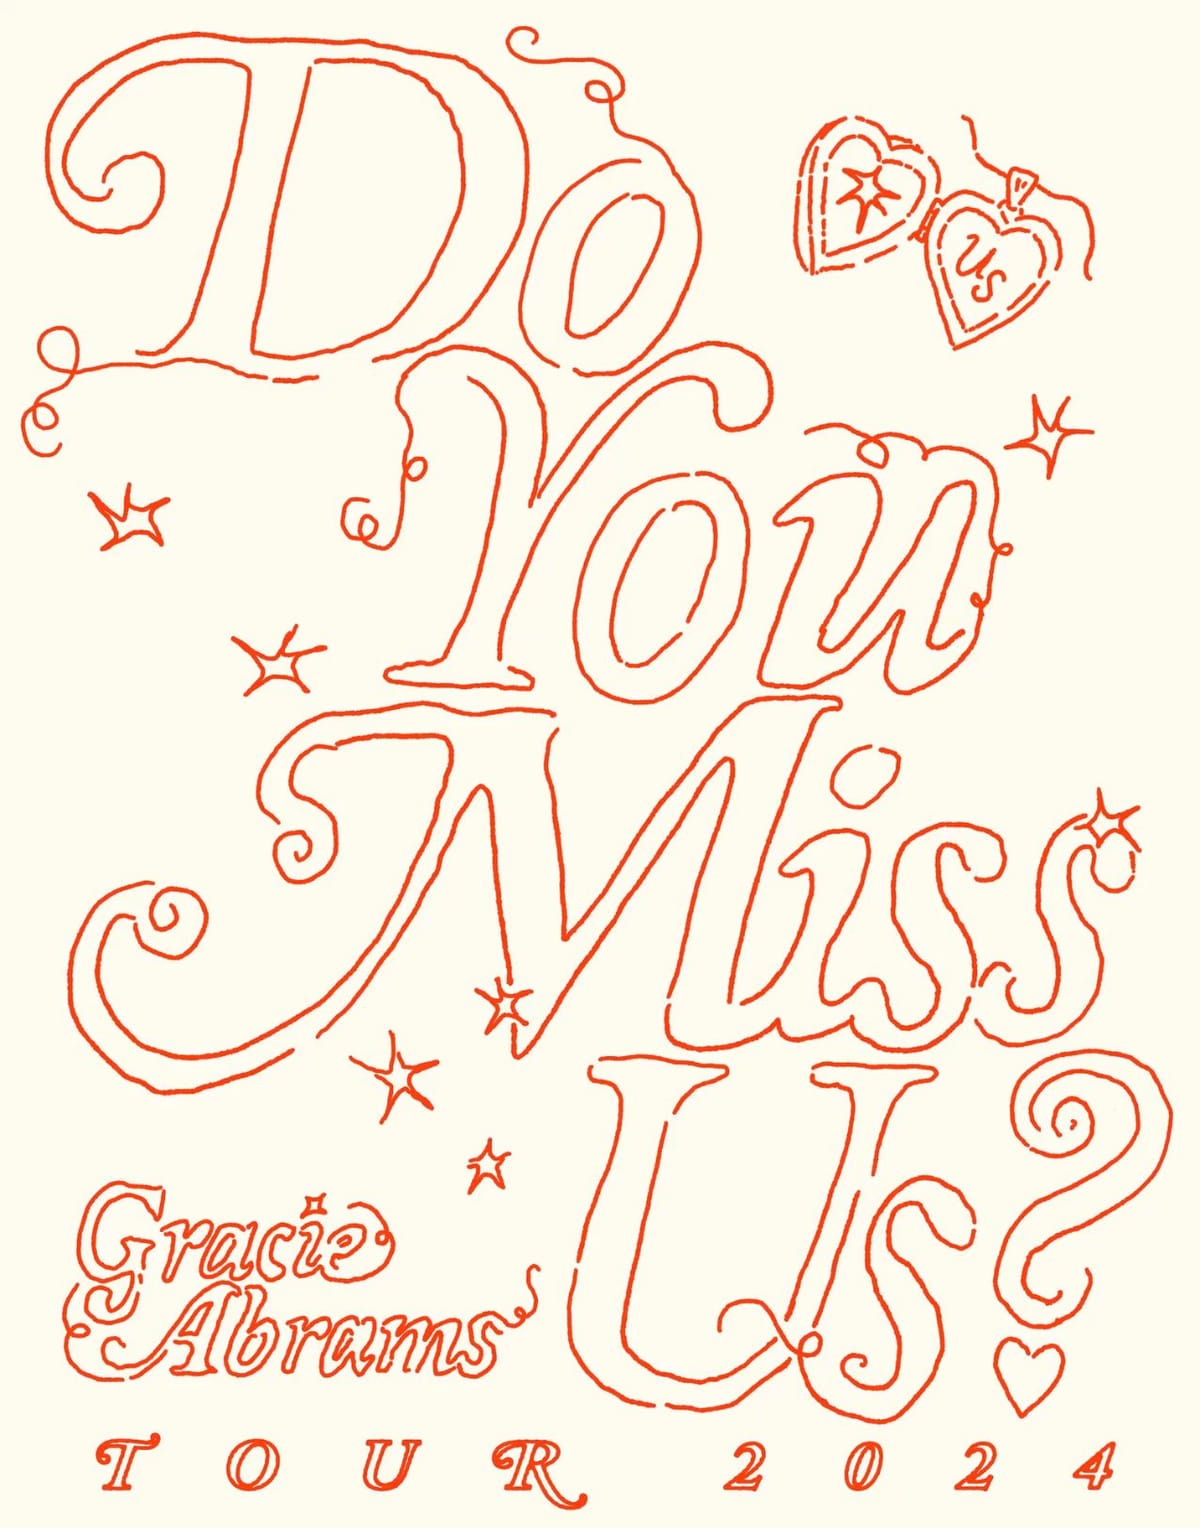 Do
us
You
Miss
Us?
Gracie
Abrams
TOUR 2024